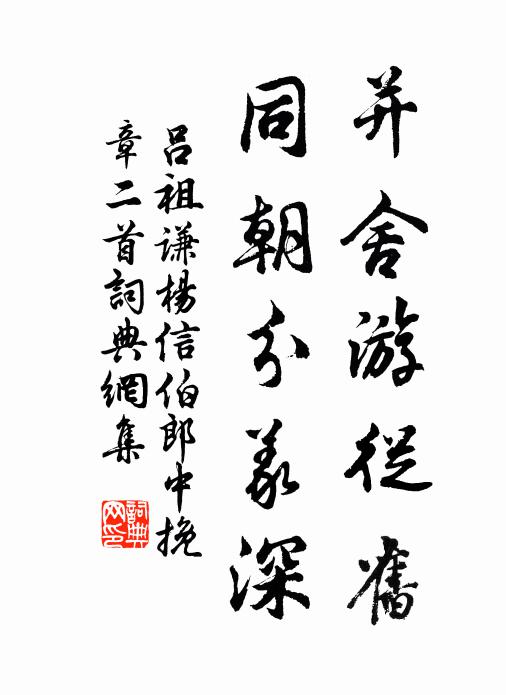 并舍游從舊
同朝分義深
呂祖謙楊信伯郎中挽
章二首詞典網集
詞典網印